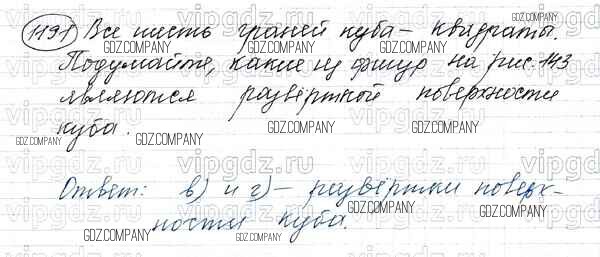 1191 Все шесть граней куба – квадраты.
Подумайте, какие из фигур на рис. 143
являются развёрткой поверхности
куба.
Ответ: в) и г) – развёртки поверх-
ности куба.